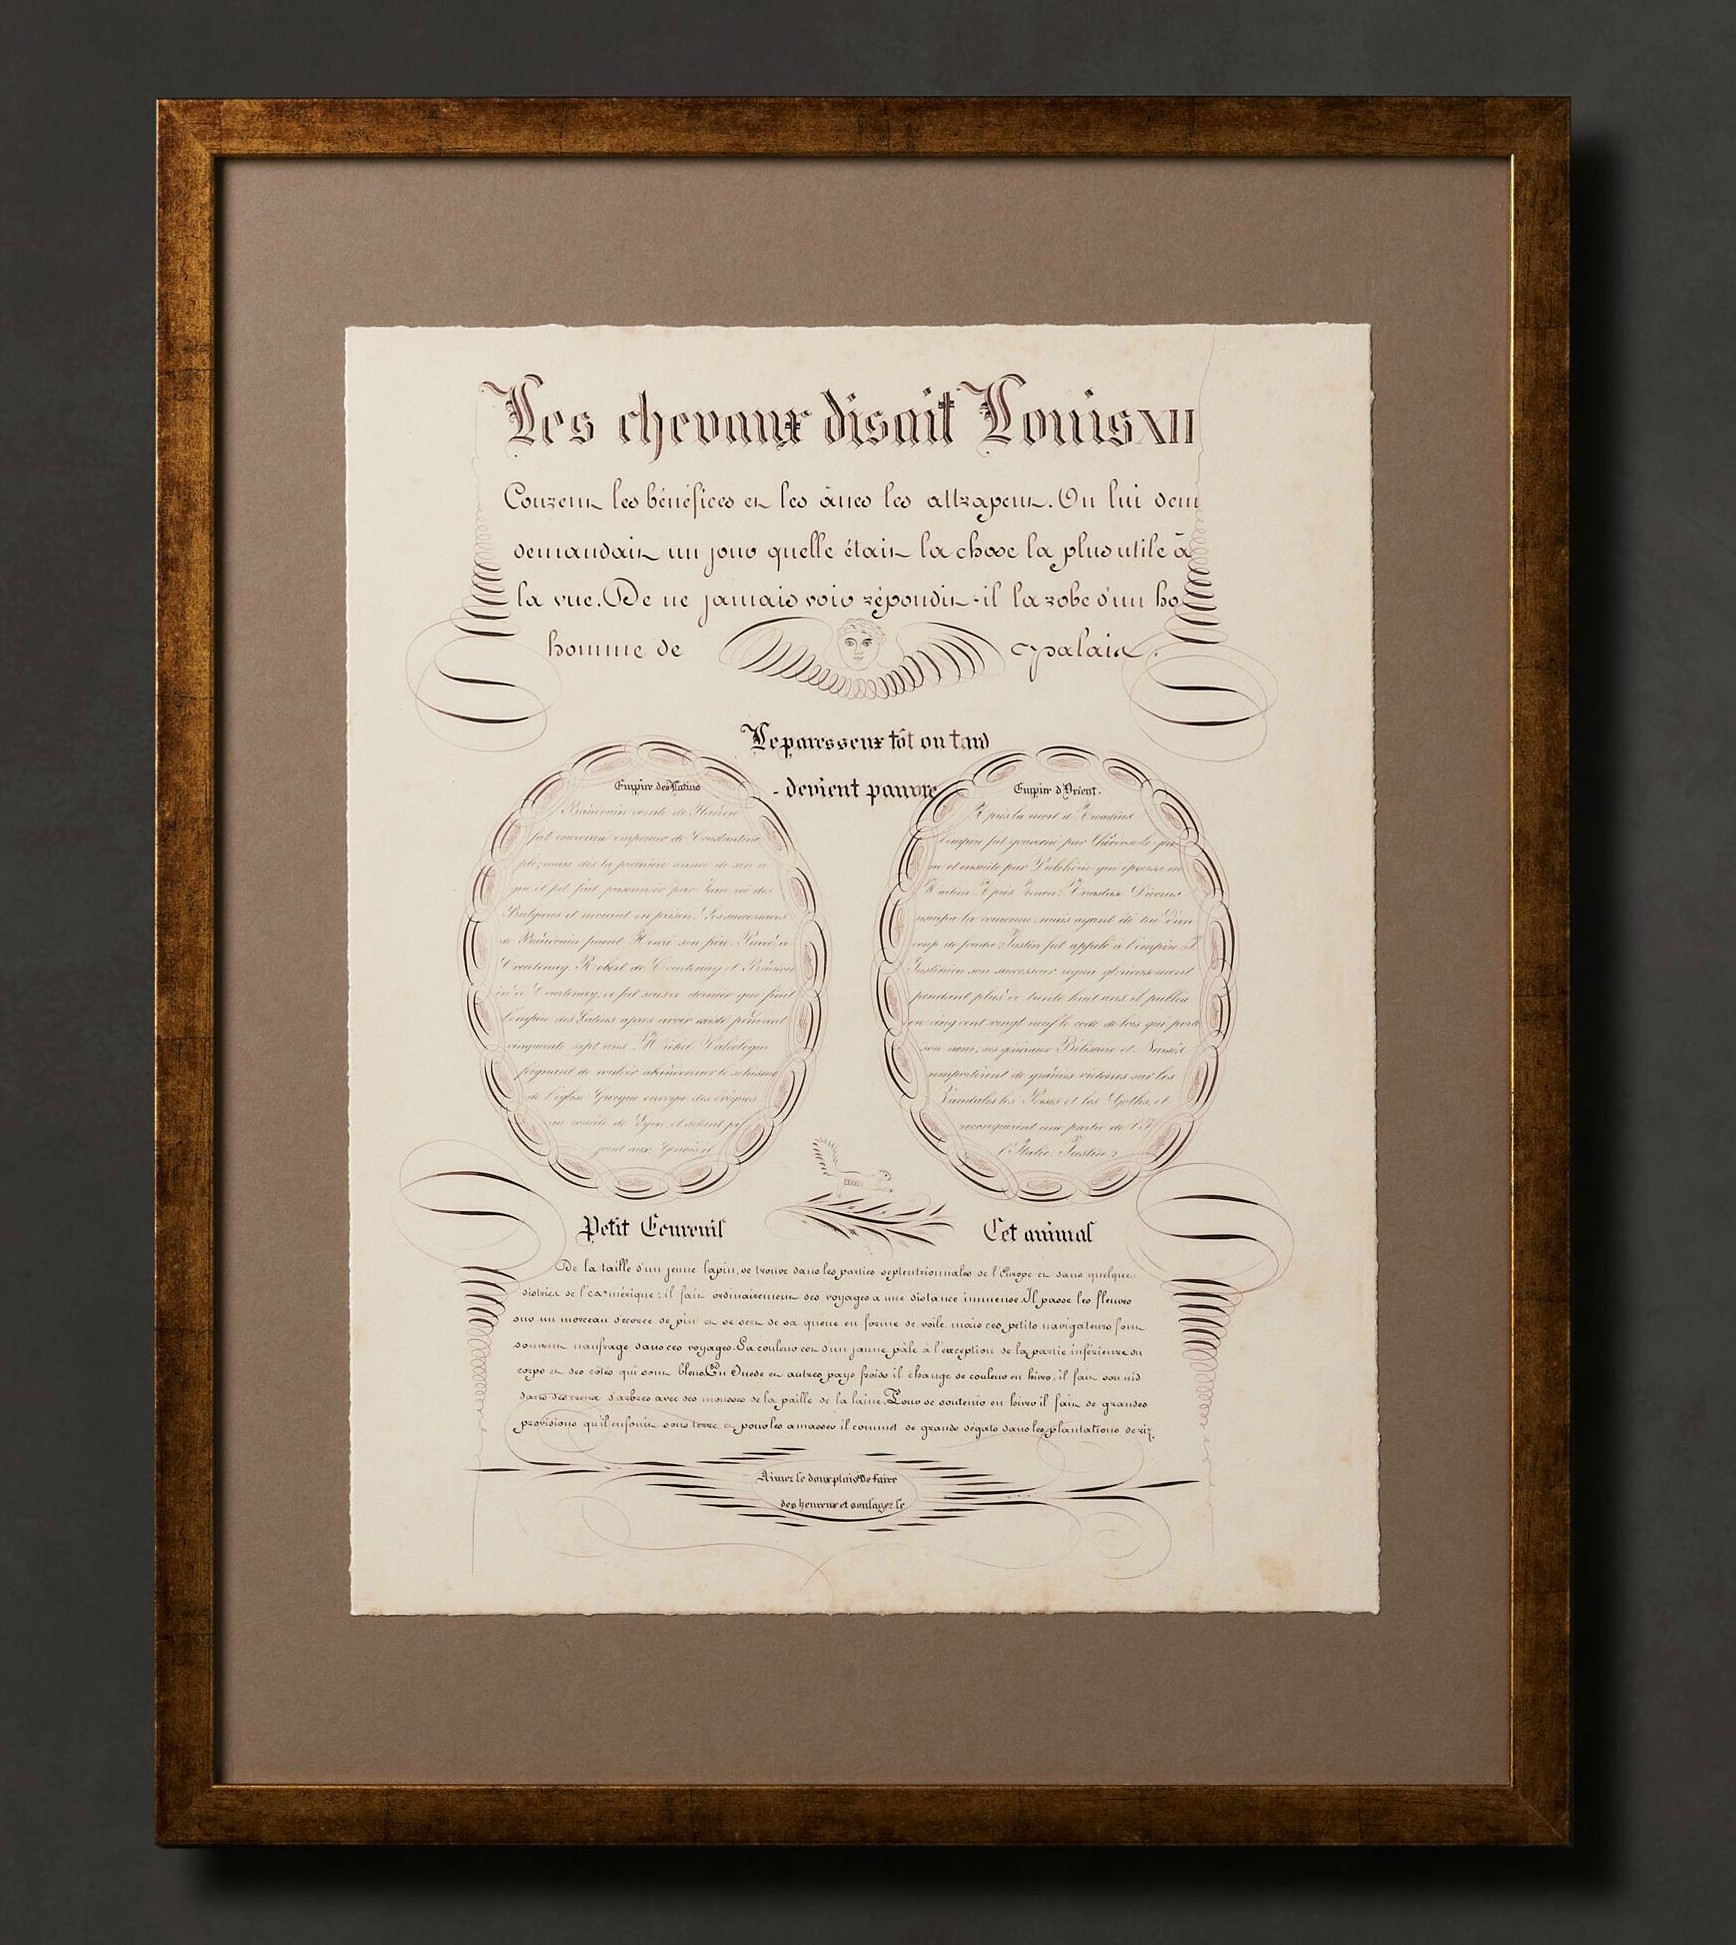 Les chevaux disait Louis XII
Courent les bénéfices et les ânes les attrapent. On lui dem
demandait un jour quelle était la chose la plus utile à
la vue. De ne jamais voir répondit-il la robe d'un ho
homme de palais.
Le paresseux tôt ou tard
- devient pauvre
Empire des Latins
Bauduin comte de
fut couronné empereur de Constantino
ple, mais dès la première année de son
il fut fait prisonnier par Jean roi des
Bulgares et mourut en prison. Les successeurs
de Bauduin furent Henri son frère, Pierre de
Courtenay Robert de Courtenay et Bauduin
de Courtenay, ce fut sous ce dernier que finit
l'empire des Latins après avoir existé pendant
cinquante sept ans. Michel Paléologue
feignant de vouloir abandonner le schisme
de l'église Grecque envoya des évêques
au concile de Lyon et
joint aux Genois il
Empire d'Orient.
Après la mort d'Arcadius
l'empire fut gouverné par Théodose le jeu
ne et ensuite par Pulchérie qui épousa
Martien. Après Zenon, Anastase Dicorus
usurpa la couronne, mais ayant été tué d'un
coup de foudre Justin fut appelé à l'empire.
Justinien son successeur régna glorieusement
pendant plus de trente huit ans il publia
en cinq cent vingt neuf le code de lois qui porte
son nom; ses généraux Bélisaire et Narsès
remportèrent de grandes victoires sur les
Vandales les Perses et les Goths, et
reconquirent une partie de
l'Italie. Justin 2
Petit Ecureuil Cet animal
De la taille d'un jeune lapin, se trouve dans les parties septentrionnales de l'Europe et dans quelques
districts de l'amérique; il fait ordinairement des voyages a une distance immense. Il passe les fleuves
sur un morceau decorce de pin et se sert de sa queue en forme de voile, mais ces petits navigateurs font
souvent naufrage dans ces voyages. Sa couleur est d'un jaune pâle à l'exception de la partie inférieure du
corps et des côtés qui sont bleus. En Suede et autres pays froids il change de couleur en hiver, il fait son nid
dans des creux d'arbres avec des mousses de la paille de la laine. Pour se soutenir en hiver il fait de grandes
provisions qu'il enfouit sous terre et pour les amasser il commet de grands dégats dans les plantations de riz.
Aimez le doux plaisir de faire
des heureux et soulagez le